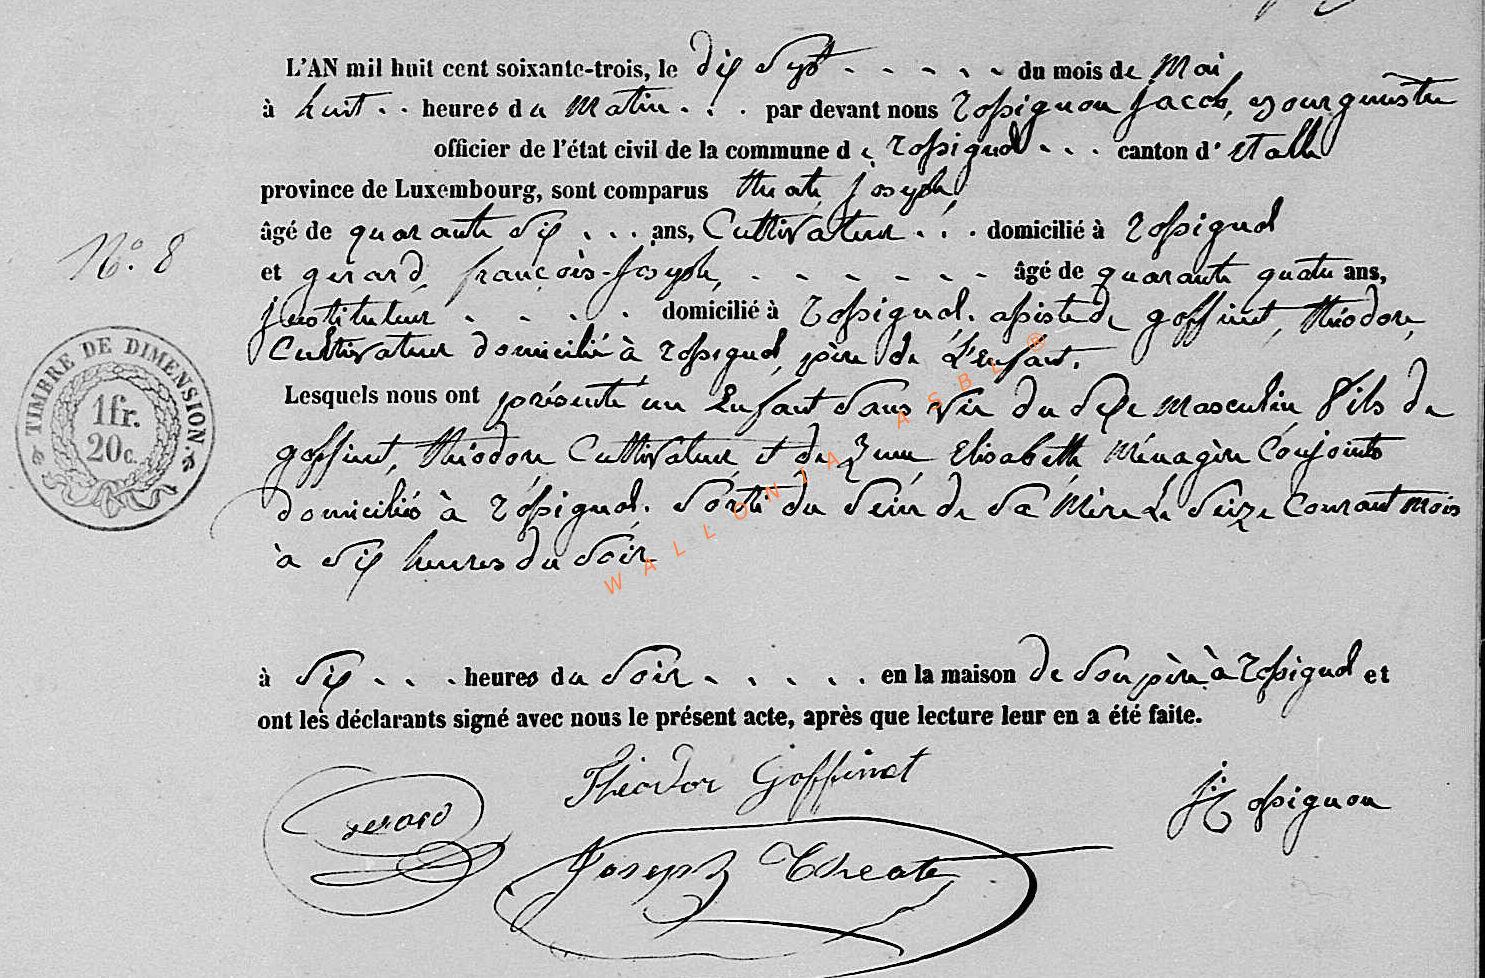 L'AN mil huit cent soixante-trois, le dix Sept - - - - - du mois de Mai
à huit - - heures du Matin - - - par devant nous Rossignon Jacob, Bourgmestre
officier de l'état civil de la commune de Rossignol - - - canton d'Etalle
province de Luxembourg, sont comparus théate Joseph,
âgé de quarante dix - - - ans, Cultivateur - - - domicilié à Rossignol
N° 8
et gerard, françois-Joseph, - - - - - - - âgé de quarante quatre ans,
Instituteur - - - - domicilié à Rossignol. assisté de goffinet, théodore,
Cultivateur domicilié à Rossignol, père de L'Enfant.
TIMBRE DE DIMENSION
1fr.
20c.
Lesquels nous ont présenté un Enfant Sans Vie du Sexe masculin fils de
goffinet, théodore Cultivateur et de Elisabeth Ménagère Conjoints
domiciliés à Rossignol. Sorti du Sein de Sa Mère Le Seize Courant mois
à dix heures du Soir
WALLONIA ASBL ®
à dix - - - heures du Soir - - - - - en la maison de Son père à Rossignol et
ont les déclarants signé avec nous le présent acte, après que lecture leur en a été faite.
Théodor Goffinet
Gerard
J: Rossignon
Joseph Theate